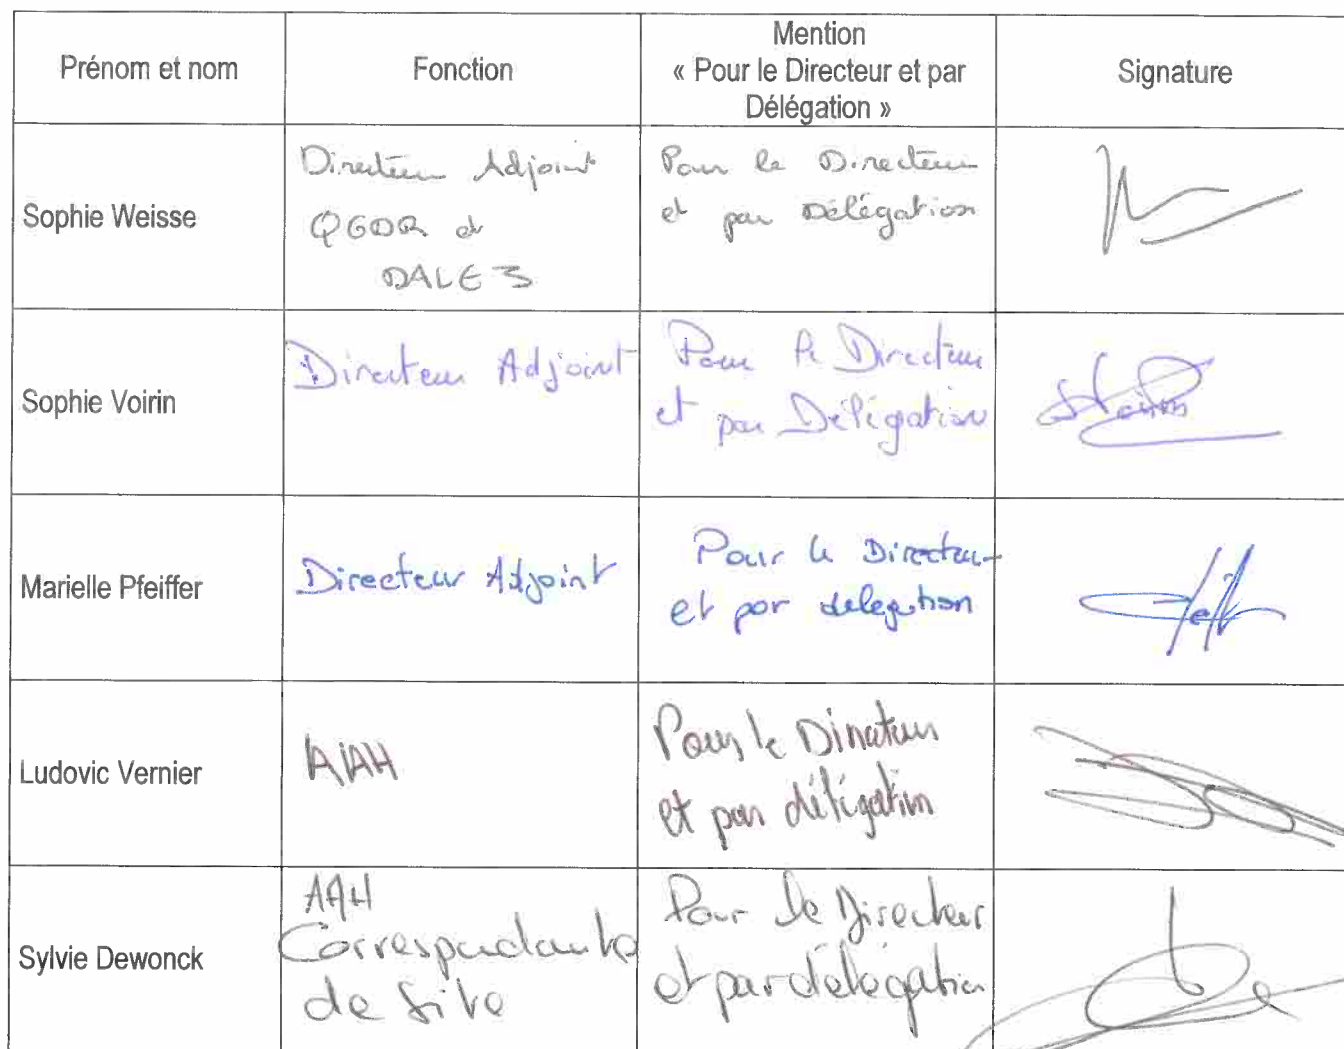 Prénom et nom
Fonction
Mention
« Pour le Directeur et par
Délégation »
Signature
Sophie Weisse
Directeur Adjoint
QGDR et
DALE 3
Pour le Directeur
et par Délégation
Sophie Voirin
Directeur Adjoint
Pour le Directeur
et par Délégation
Marielle Pfeiffer
Directeur Adjoint
Pour le Directeur
et par delegation
Ludovic Vernier
AAH
Pour le Directeur
et par délégation
Sylvie Dewonck
AAH
Correspondante
de site
Pour le Directeur
et par délégation